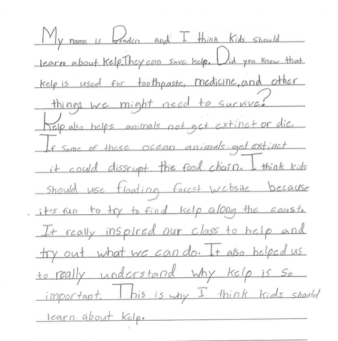 My name is Braden and I think kids should
learn about kelp. They can save kelp. Did you know that
kelp is used for toothpaste, medicine, and other
things we might need to survive?
Kelp also helps animals not get extinct or die.
If some of these ocean animals get extinct
it could dissrupt the food chain. I think kids
should use floating forest website because
it's fun to try to find kelp along the coast.
It really inspired our class to help and
try out what we can do. It also helped us
to really understand why kelp is so
important. This is why I think kids should
learn about kelp.